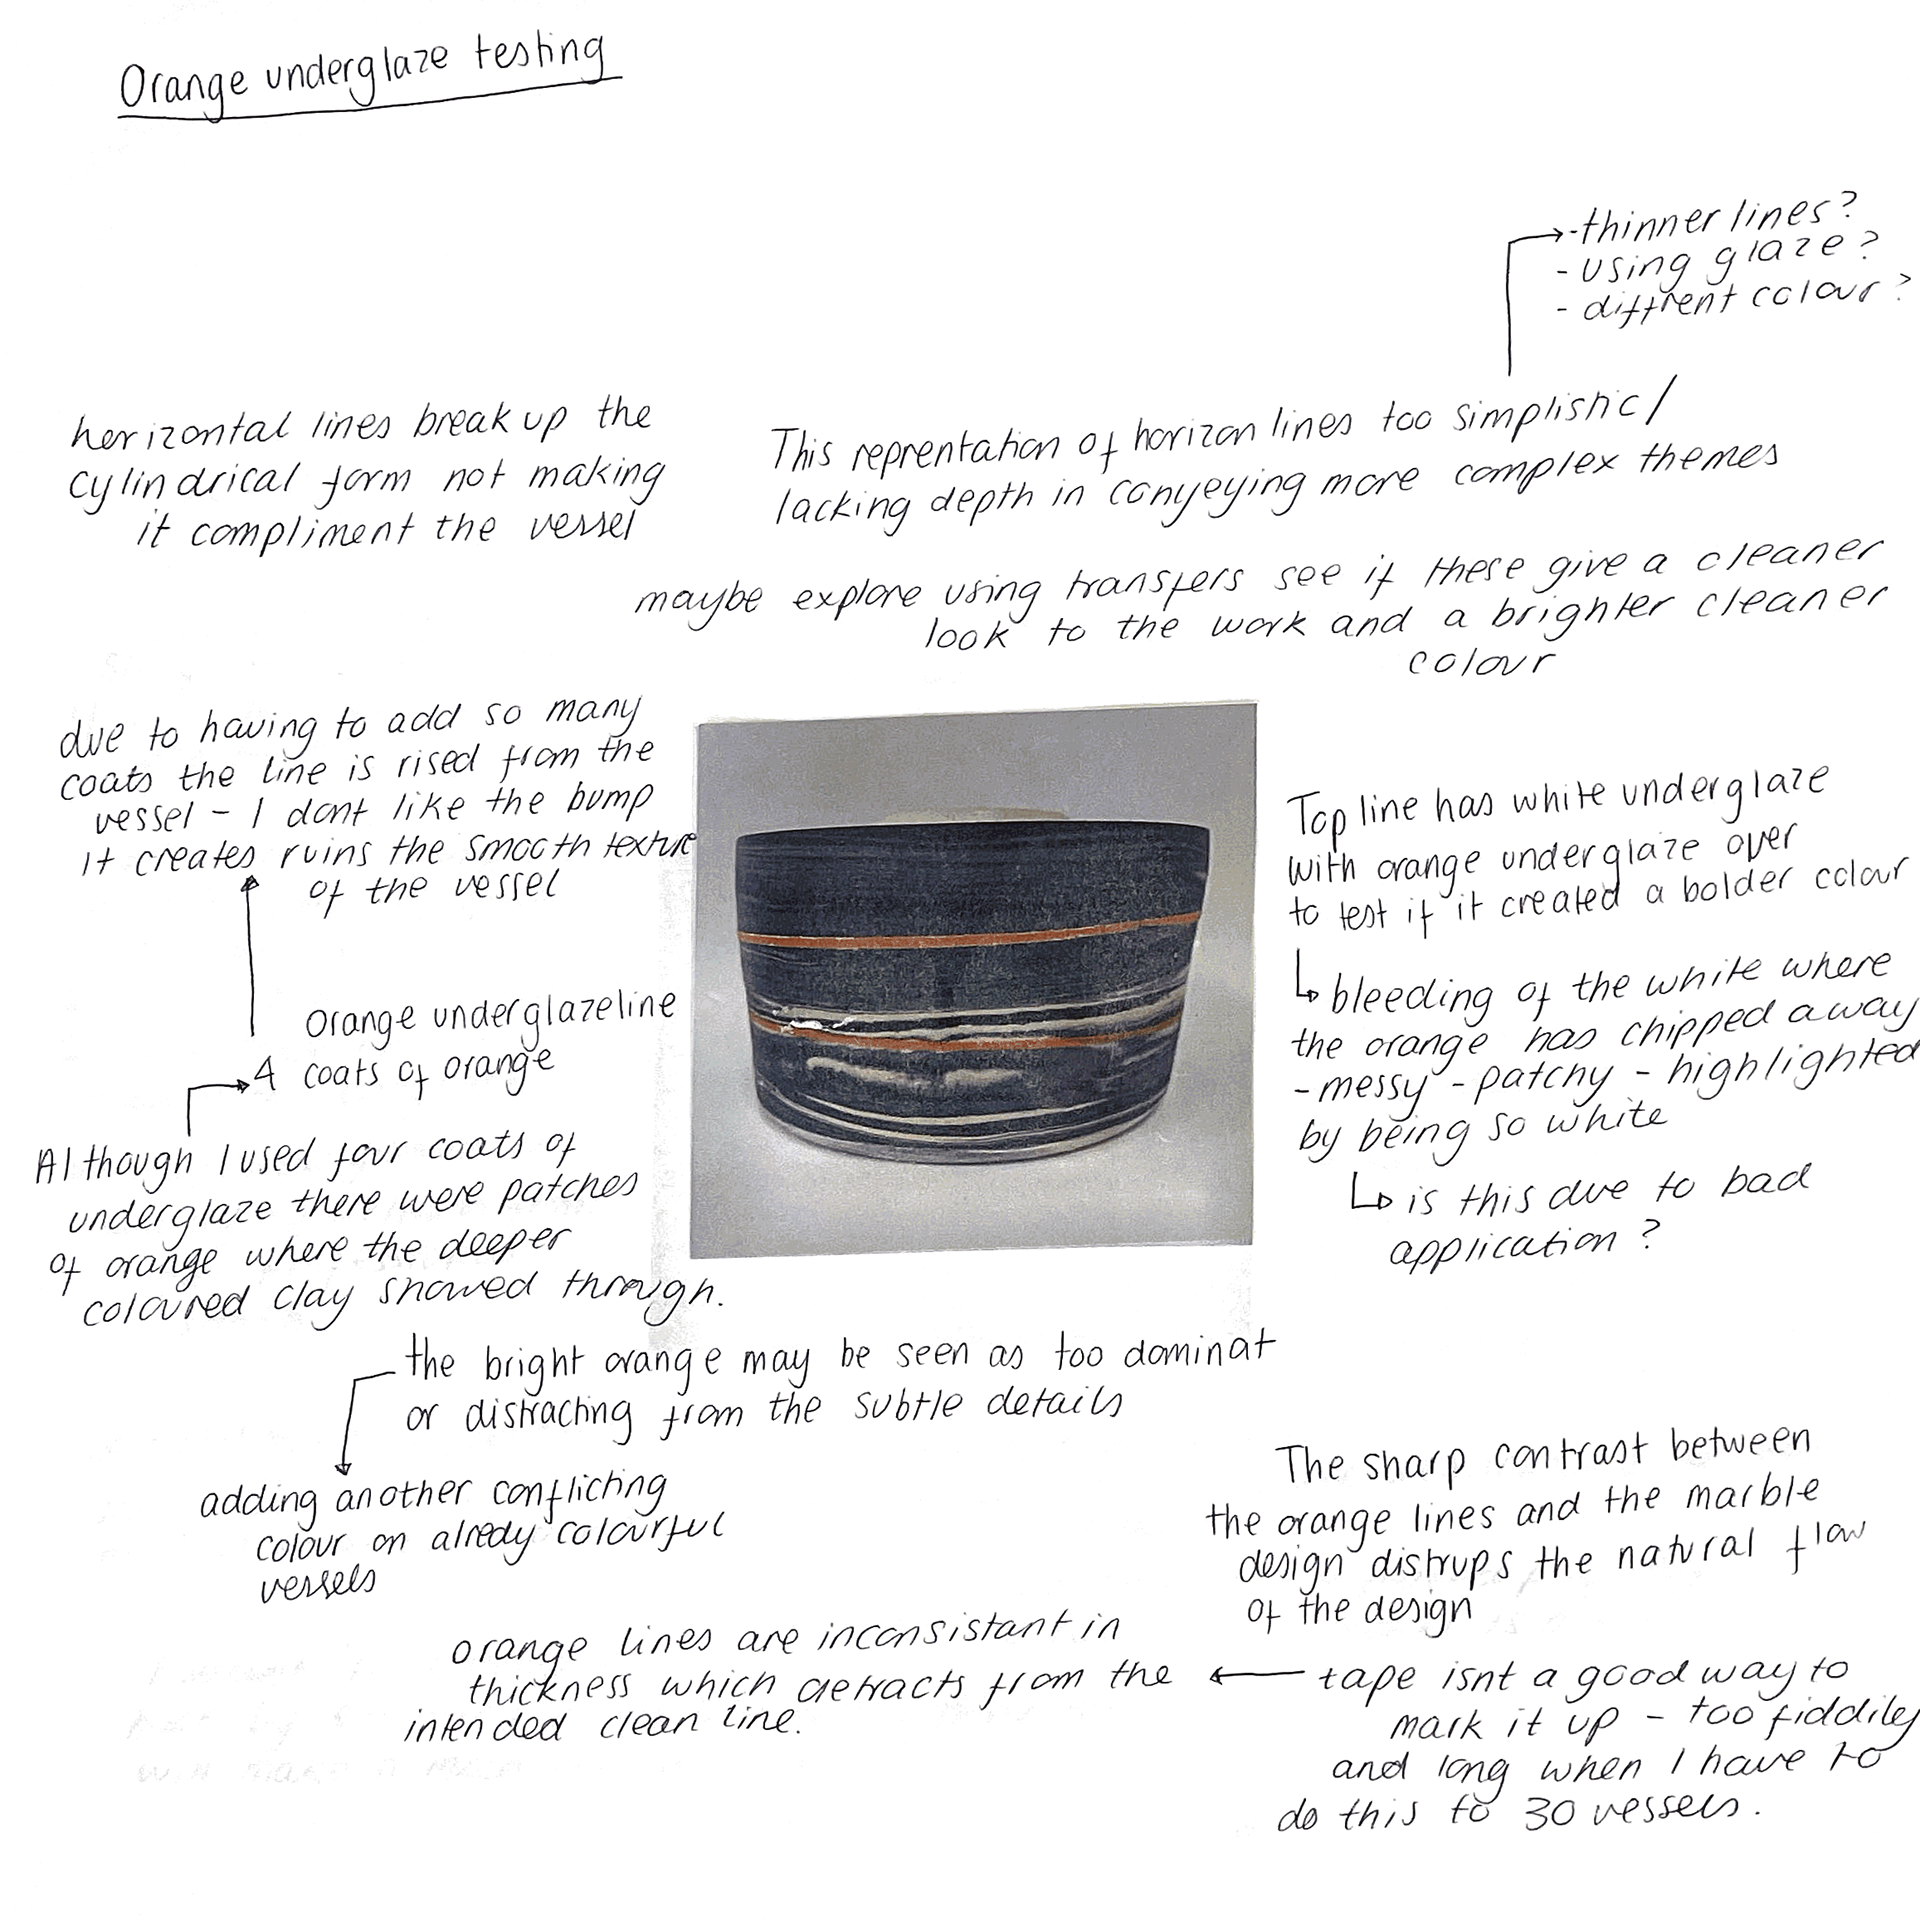 Orange underglaze testing
-thinner lines?
- using glaze?
- diffrent colour?
horizontal lines break up the
cylindrical form not making
it compliment the vessel
This reprentation of horizon lines too simplistic/
lacking depth in conyeying more complex themes
maybe explore using transfers see if these give a cleaner
look to the work and a brighter cleaner
colour
due to having to add so many
coats the line is rised from the
vessel - I dont like the bump
it creates ruins the smooth texture
of the vessel
Orange underglazeline
4 coats of orange
Although I used four coats of
underglaze there were patches
of orange where the deeper
coloured clay showed through.
Top line has white underglaze
with orange underglaze over
to test if it created a bolder colour
bleeding of the white where
the orange has chipped away
- messy - patchy - highlighted
by being so white
is this due to bad
application?
the bright orange may be seen as too dominat
or distracting from the subtle details
adding another conflicting
colour on alredy colourful
vessels
The sharp contrast between
the orange lines and the marble
design distrups the natural flow
of the design
orange lines are inconsistant in
thickness which detracts from the
intended clean line.
tape isnt a good way to
mark it up - too fiddiley
and long when I have to
do this to 30 vessels.